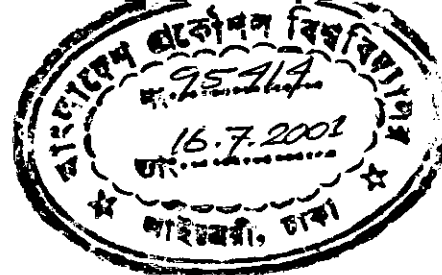 বাংলাদেশ প্রকৌশল বিশ্ববিদ্যালয়
নং 95414
তাং 16.7.2001
লাইব্রেরী, ঢাকা